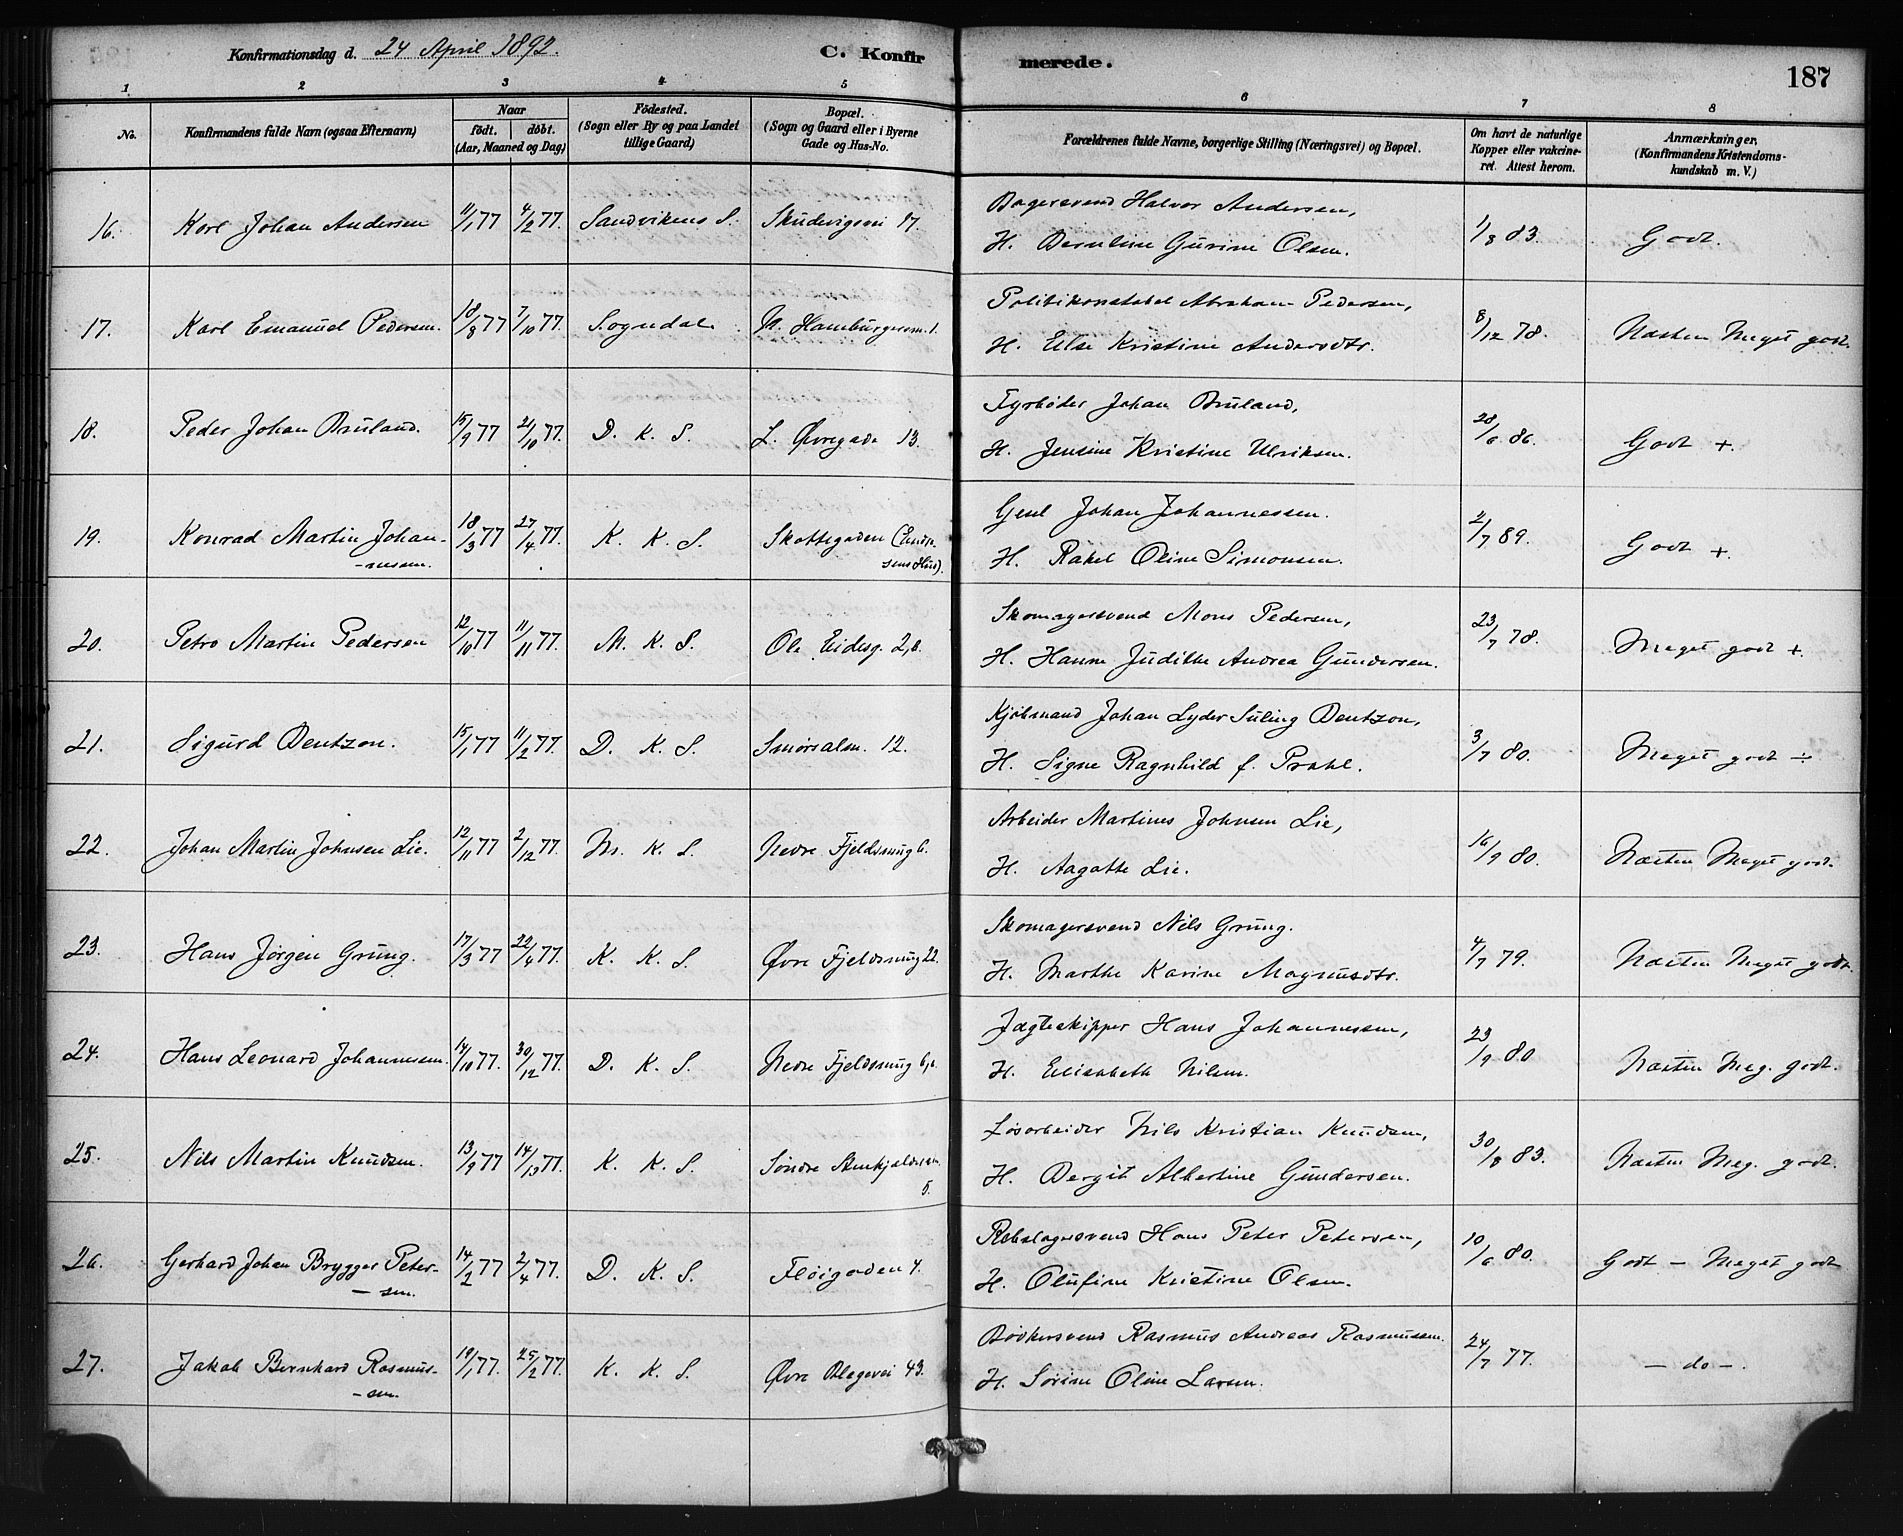 Konfirmationsdag d. 24 April 1892.
C. Konfirmerede.
187
1 2 3 4 5 6 7 8
No.
Konfirmandens fulde Navn (ogsaa Efternavn)
Naar
födt. döbt.
(Aar, Maaned og Dag)
Födested.
(Sogn eller By og paa Landet
tillige Gaard)
Bopæl.
(Sogn og Gaard eller i Byerne
Gade og Hus-No.
Forældrenes fulde Navne, borgerlige Stilling (Næringsvei) og Bopæl.
Om havt de naturlige
Kopper eller vakcine-
ret. Attest herom.
Anmærkninger.
(Konfirmandens Kristendoms-
kundskab m. V.)
16. Karl Johan Andersen 11/1 77 4/2 77. Sandvikens S. Skudevigsvei 17.
Bagersvend Halvor Andersen,
H. Berntine Gurine Olsen.
1/8 83. Godt.
17. Karl Emanuel Pedersen. 18/8 77 7/10 77. Sogndal. N. Hamburgersm. 1.
Politikonstabel Abraham Pedersen,
H. Else Kristine Andersdtr.
8/12 78. Næsten Meget godt.
18. Peder Johan Bruland. 15/9 77 21/10 77. D. K. S. L. Øvregade 13.
Fyrbøder Johan Bruland,
H. Jensine Kristine Ulriksen.
28/6 86. Godt +.
19. Konrad Martin Johan-
-nessen. 18/3 77 27/4 77. K. K. S. Skottegaden
sens Hus).
Johan Johannessen.
H. Rakel Oline Simonsen.
2/7 89. Godt +
20. Petro Martin Pedersen 12/10 77 11/11 77. M. K. S. Ole Eidesg. 2,b.
Skomagersvend Mons Pedersen,
H. Hanne Judithe Andrea Gundersen.
23/7 78. Meget godt +.
21. Sigurd Bentzon. 15/1 77 11/2 77. D. K. S. Smørsalm. 12.
Kjøbmand Johan Lyder Süling Bentzon,
H. Signe Ragnhild f. Prahl.
3/7 80. Meget godt ÷
22. Johan Martin Johnsen Lie. 12/11 77 2/12 77. M. K. S. Nedre Fjeldsmug 6.
Arbeider Martines Johnsen Lie,
H. Aagatte Lie.
16/9 80. Næsten Meget godt.
23. Hans Jørgen Grung. 17/3 77 22/4 77. K. K. S. Øvre Fjeldsmug 22.
Skomagersvend Nils Grung.
H. Marthe Karine Magnusdtr.
4/7 79. Næsten Meget godt.
24. Hans Leonard Johannessen. 14/10 77. 30/12 77. D. K. S. Nedre Fjeldsmug 6,b.
Jægteskipper Hans Johannessen,
H. Elisabeth Nilsen.
23/9 80. Næsten Meg. godt.
25. Nils Martin Knudsen. 13/9 77 14/13 77. K. K. S. Søndre
5.
Løsarbeider Nils Kristian Knudsen,
H. Bergit Albertine Gundersen.
30/8 83. Næsten Meg. godt.
26. Gerhard Johan Brygger Peter-
-sen. 14/2 77 2/4 77. D. K. S. Fløigaden 4.
Rebslagersvend Hans Peter Petersen,
H. Olufine Kristine Olsen.
10/6 80. Godt - Meget godt
27. Jakob Bernhard Rasmus-
-sen. 19/1 77. 25/2 77. K. K. S. Øvre Blegevei 43.
Bødkersvend Rasmus Andreas Rasmussen.
H. Sorine Oline Larsen.
24/7 77. - do -.